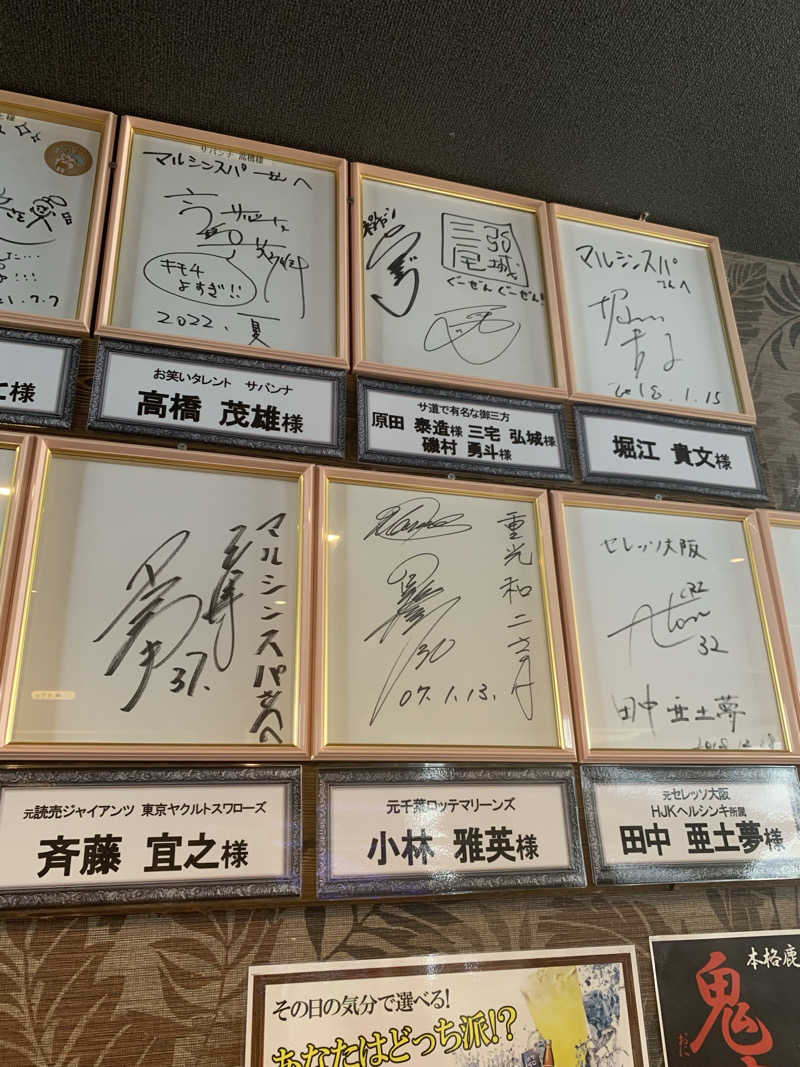 サバンナ 高橋様
マルシンスパ さんへ
キモチ
よすぎ!!
2022.夏
三宅
弘城
ぐーぜんぐーぜん!
マルシンスパ
さんへ
2018.1.15
様
お笑いタレント サバンナ
高橋 茂雄様
サ道で有名な御三方
原田 泰造様 三宅 弘城様
磯村 勇斗様
堀江 貴文様
マルシンスパさんへ
37.
重光和二さん
30
07.1.13.
セレッソ大阪
32
田中 亜土夢
元読売ジャイアンツ 東京ヤクルトスワローズ
斉藤 宜之様
元千葉ロッテマリーンズ
小林 雅英様
元セレッソ大阪
HJKヘルシンキ所属
田中 亜土夢様
その日の気分で選べる!
あなたはどっち派!?
本格鹿
鬼
おに